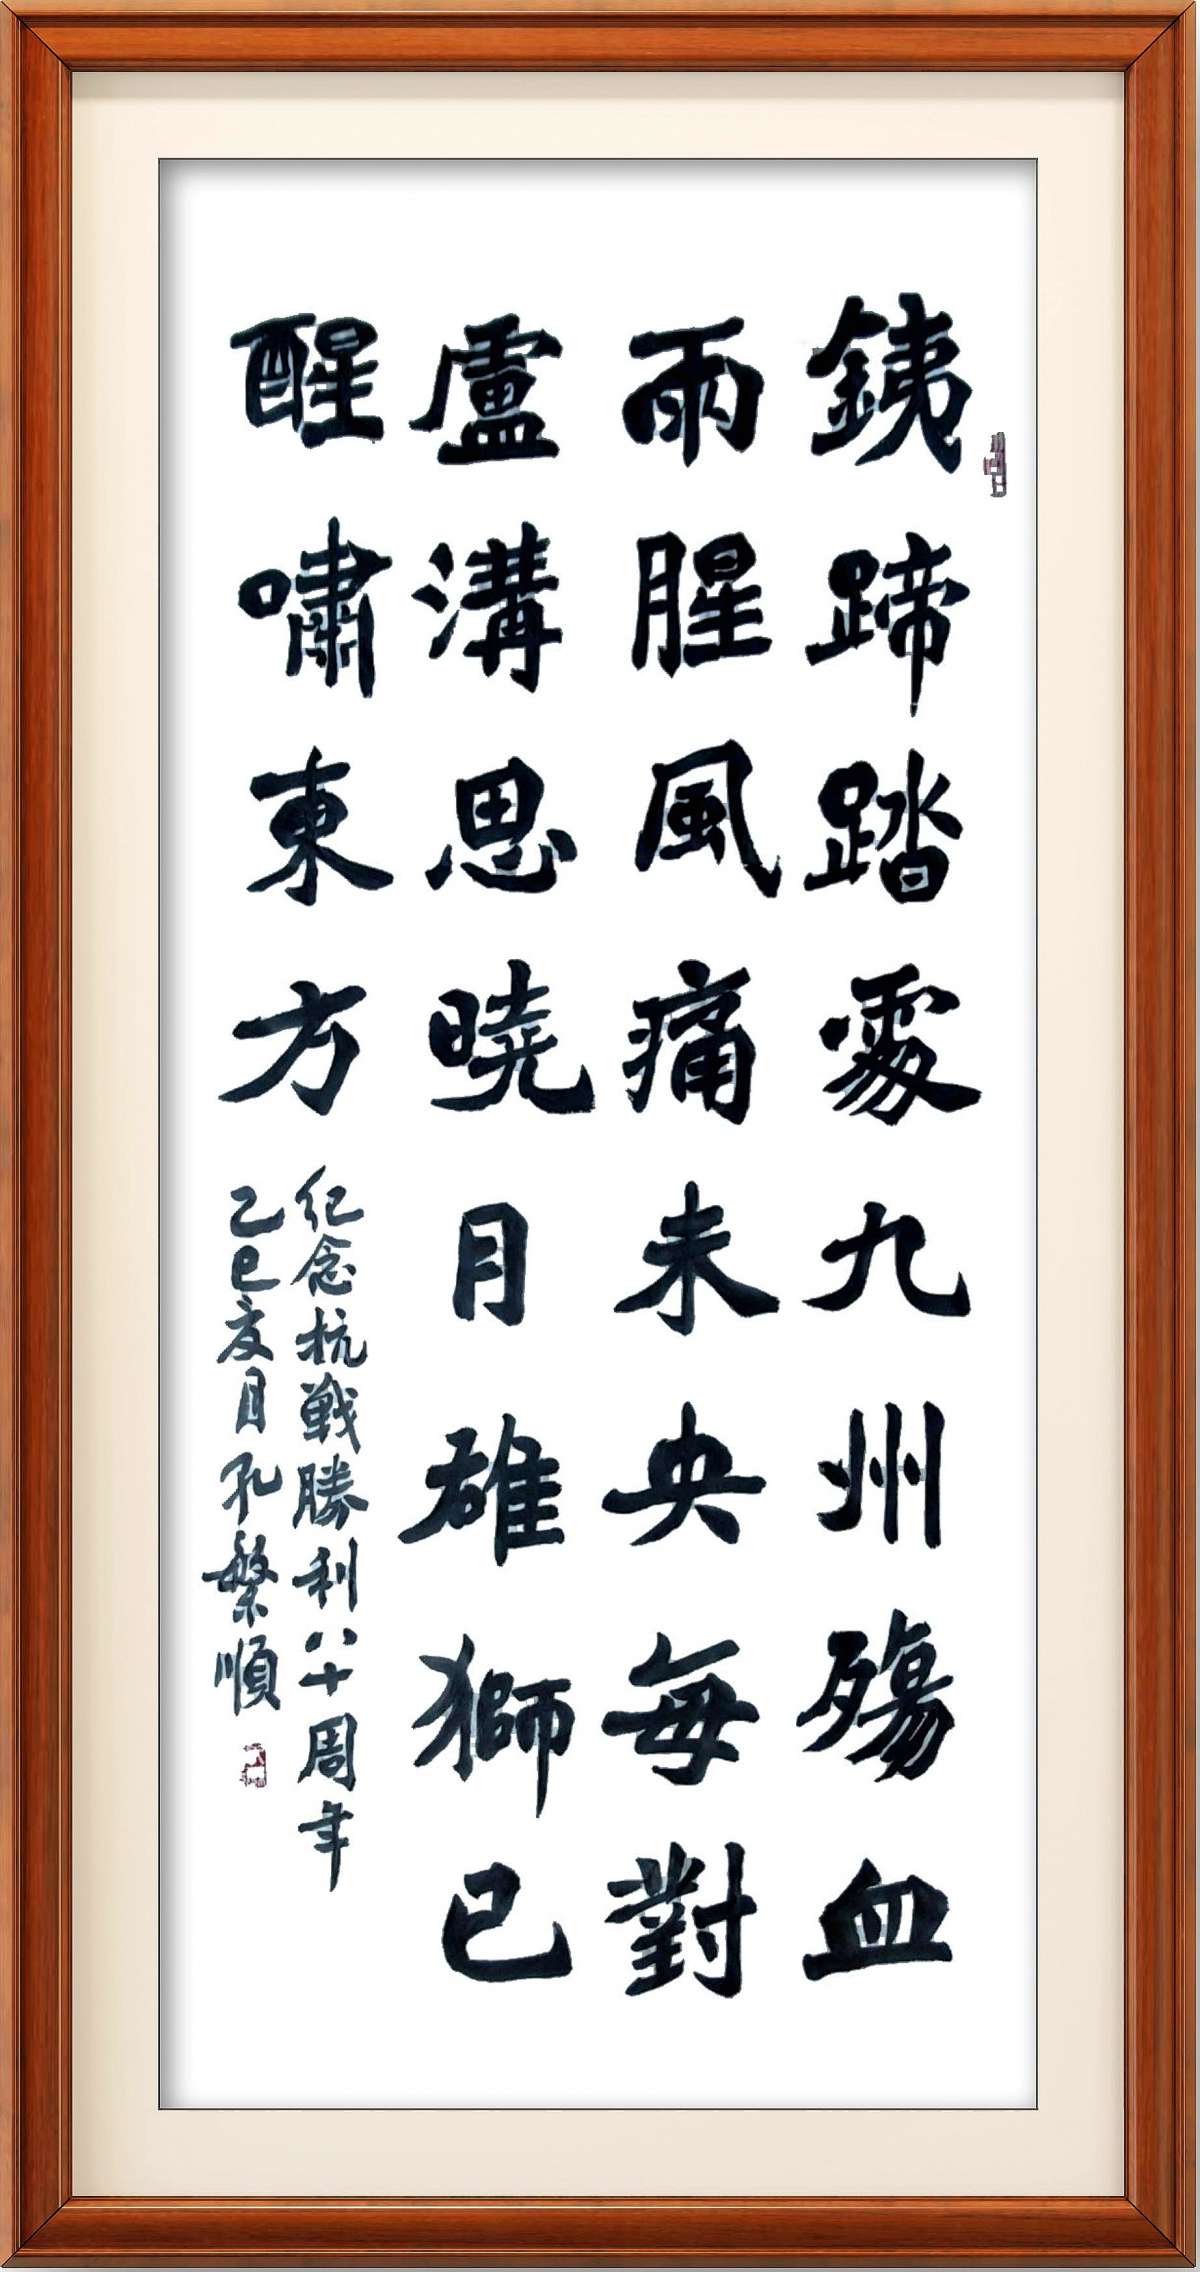 銕蹄踏處九州殤血
雨腥風痛未央每對
盧溝思曉月雄獅已
醒嘯東方
紀念抗戰勝利八十周年
乙巳夏月孔繁順